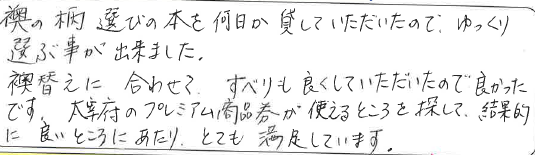 襖の柄 選びの本を何日か貸していただいたので、ゆっくり
選ぶ事が出来ました。
襖替えに 合わせて、すべりも良くしていただいたので良かった
です。太宰府のプレミアム商品券が使えるところを探して、結果的
に良いところにあたり、とても 満足しています。